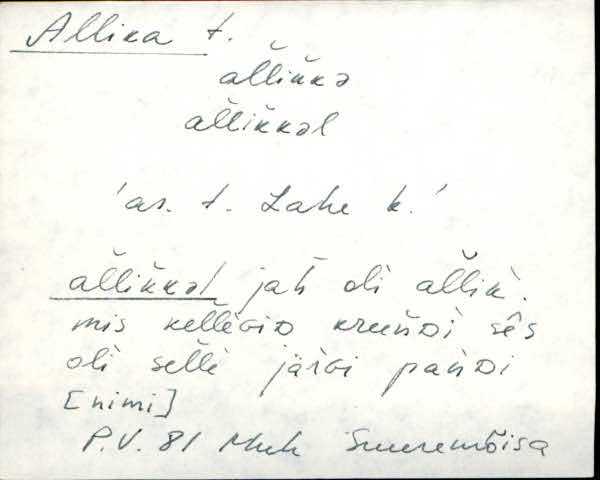 Allika t.
al̆lik̆kə
al̆lik̆kəl
'as. t. Lahe k.'
al̆lik̆kəl jah oli al̆lik.
mis kellègiᴅ kruńᴅi sês
oli sellè järvi pańᴅi
[nimi]
P.V. 81 Muh Suuremõisa